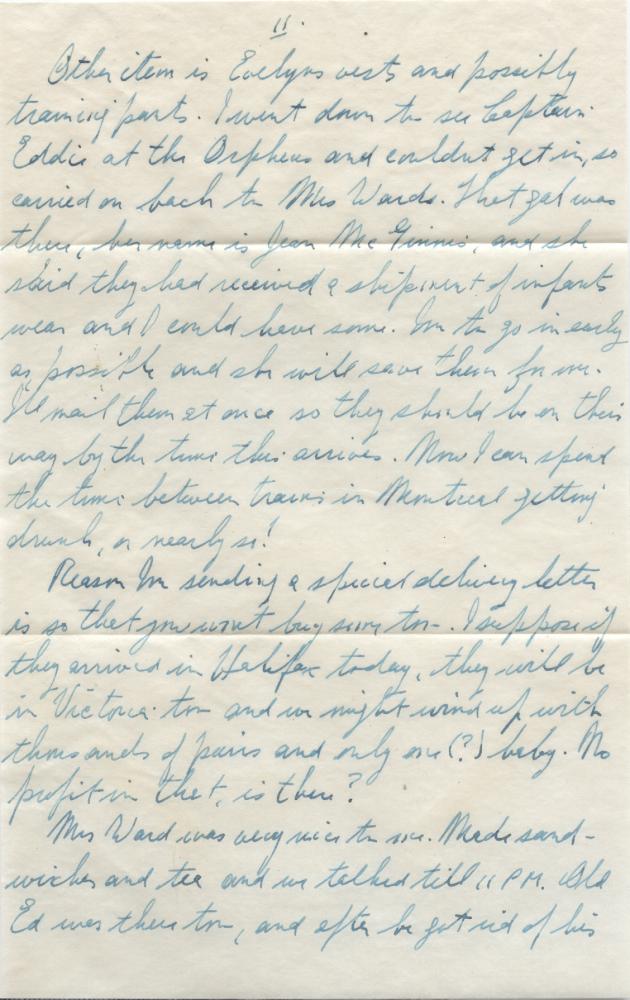 11.
Other item is Evelyns vests and possibly
training pants. I went down to see Captain
Eddie at the Orpheus and couldnt get in, so
carried on back to Mrs Wards. That gal was
there, her name is Jean McGinnis, and she
said they had received a shipment of infants
wear and I could have some. Im to go in early
as possible and she will save them for me.
Ill mail them at once so they should be on their
way by the time this arrives. Now I can spend
the time between trains in Montreal getting
drunk, or nearly so!
Reason Im sending a special delivery letter
is so that you wont buy some too. I suppose if
they arrived in Halifax today, they will be
in Victoria too and we might wind up with
thousands of pairs and only one (?) baby. No
profit in that, is there?
Mrs Ward was very nice to me. Made sand-
wiches and tea and we talked till 11 PM. Old
Ed was there too, and after he got rid of his